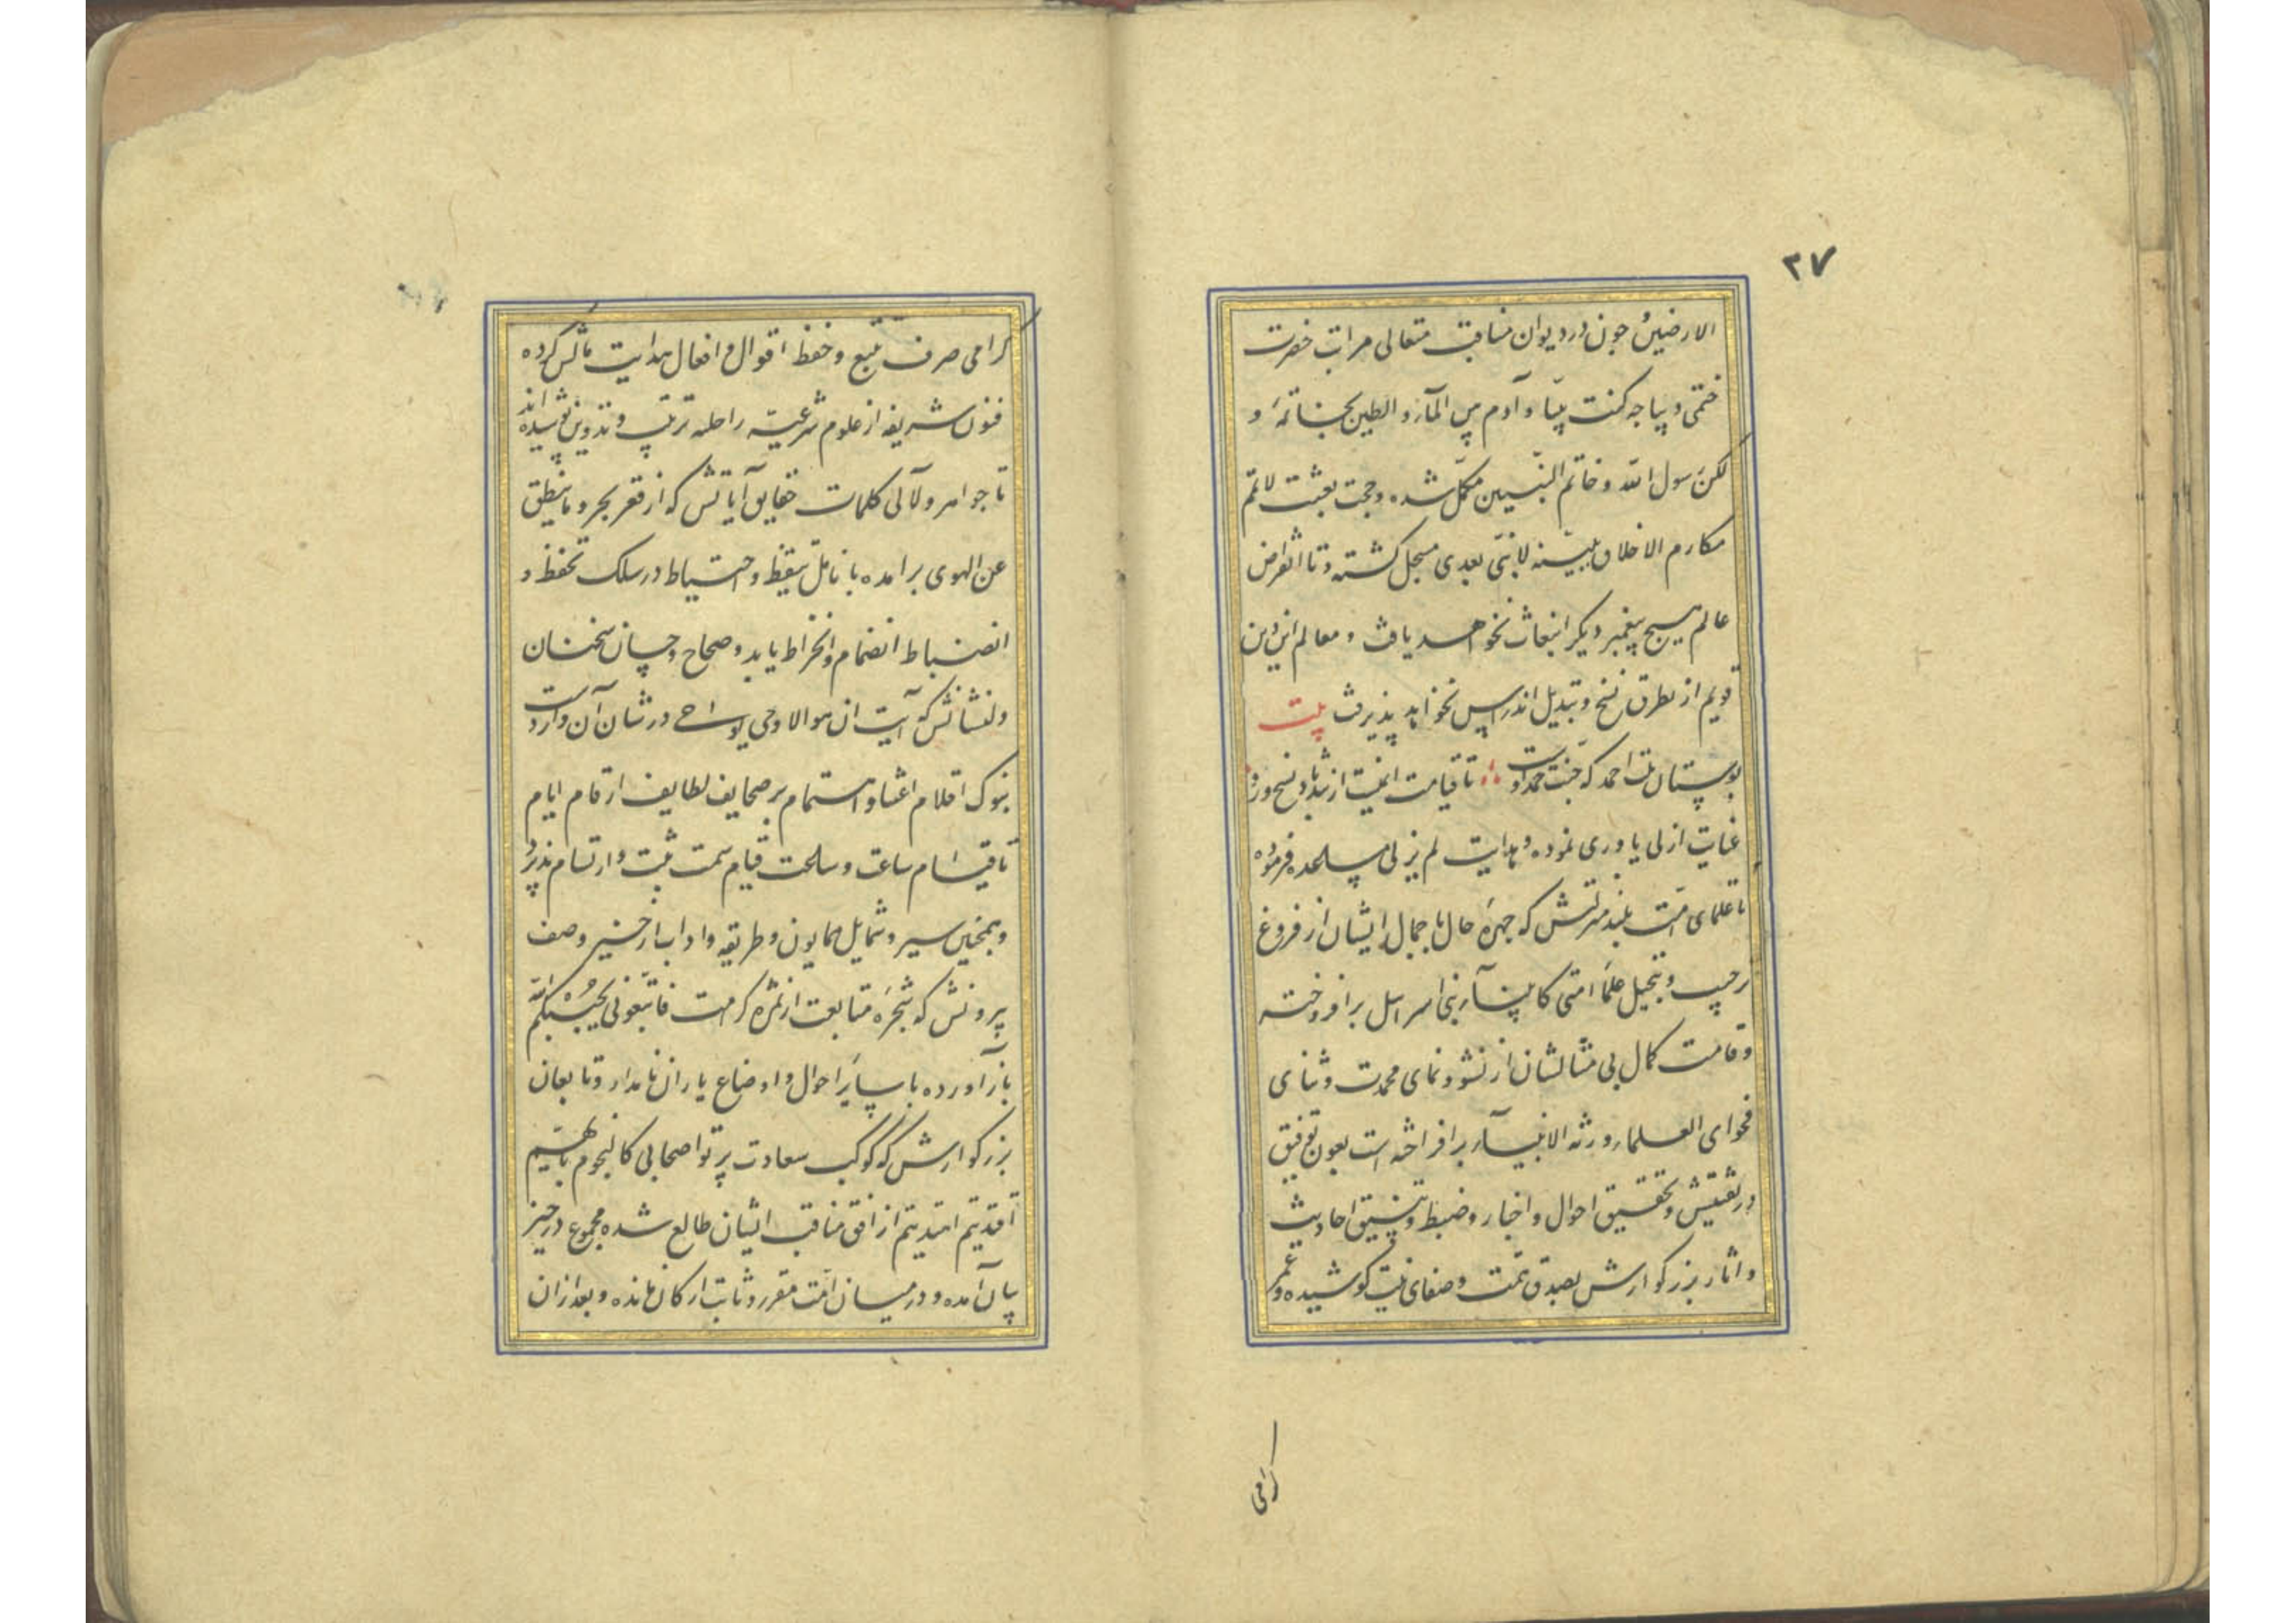 ۲۷
الارضین چون در دیوان مناقب متعالی مراتب حضرت
ختمی دیباجه کنت نبیا و آدم بین المآء و الطین بخاتمهٔ و
لکن رسول الله و خاتم النبیین مکمل شده و حجت بعثت لاتمم
مکارم الاخلاق ببینه لا نبی بعدی مسجل کشته و تا انقراض
عالم هیچ پیغمبر دیکر انبعاث نخواهد یافت و معالم این دین
قویم از تطرق نسخ و تبدیل اندراس نخواهد پذیرفت بیت
بوستان ملت احمد که جنت حمد اوست تا قیامت ایمنست از تندباد نسخ
عنایت ازلی یاوری نموده و هدایت لم یزلی فرموده
تا علمای امت بلند منزلتش که چهرهٔ حال با جمال ایشان از فروغ
ترحیب و تبجیل علمآء امتی کانبیآء بنی اسرایل برافروخته
و قامت کمال بی مثالشان از نشو و نمای محمدت و ثنای
فحوای العلمآء ورثة الانبیآء برافراخته است بعون توفیق
در تفتیش و تحقیق احوال و اخبار و ضبط و تنسیق احادیث
و اثار بزرکوارش بصدق همت و صفای نیت کوشیده و عمر
کرامی
کرامی صرف تتبع و حفظ اقوال و افعال هدایت مآلش کرده
فنون شریفه از علوم شرعیه را حلیه ترتیب و تدوین پوشیده اند
تا جواهر و لآلی کلمات حقایق آیاتش که از قعر بحر و ما ینطق
عن الهوی برامده بانامل تیقظ و احتیاط در سلک تحفظ و
انضباط انضمام و انخراط یابد و صحاح و حسان سخنان
ولنشانش که آیت ان هو الا وحی یوحی در شان آن واردست
بنوک اقلام اعتنا و اهتمام بر صحایف لطایف ارقام ایام
تا قیام ساعت و ساعت قیام سمت ثبت و ارتسام پذیرد
و همچنین سیر و شمایل همایون و طریقه و اداب از حیز وصف
بیرونش که شجرهٔ متابعت از ثمره کرامت فاتبعونی یحببکم الله
بازآورده با سایر احوال و اوضاع یاران نامدار و تابعان
بزرکوارش که کوکب سعادت پرتو اصحابی کالنجوم بایهم
اقتدیتم اهتدیتم از افق مناقب ایشان طالع شده مجموع در حیز
بیان آمده و در میان امت مقرر و ثابت ارکان مانده و بعد از ان